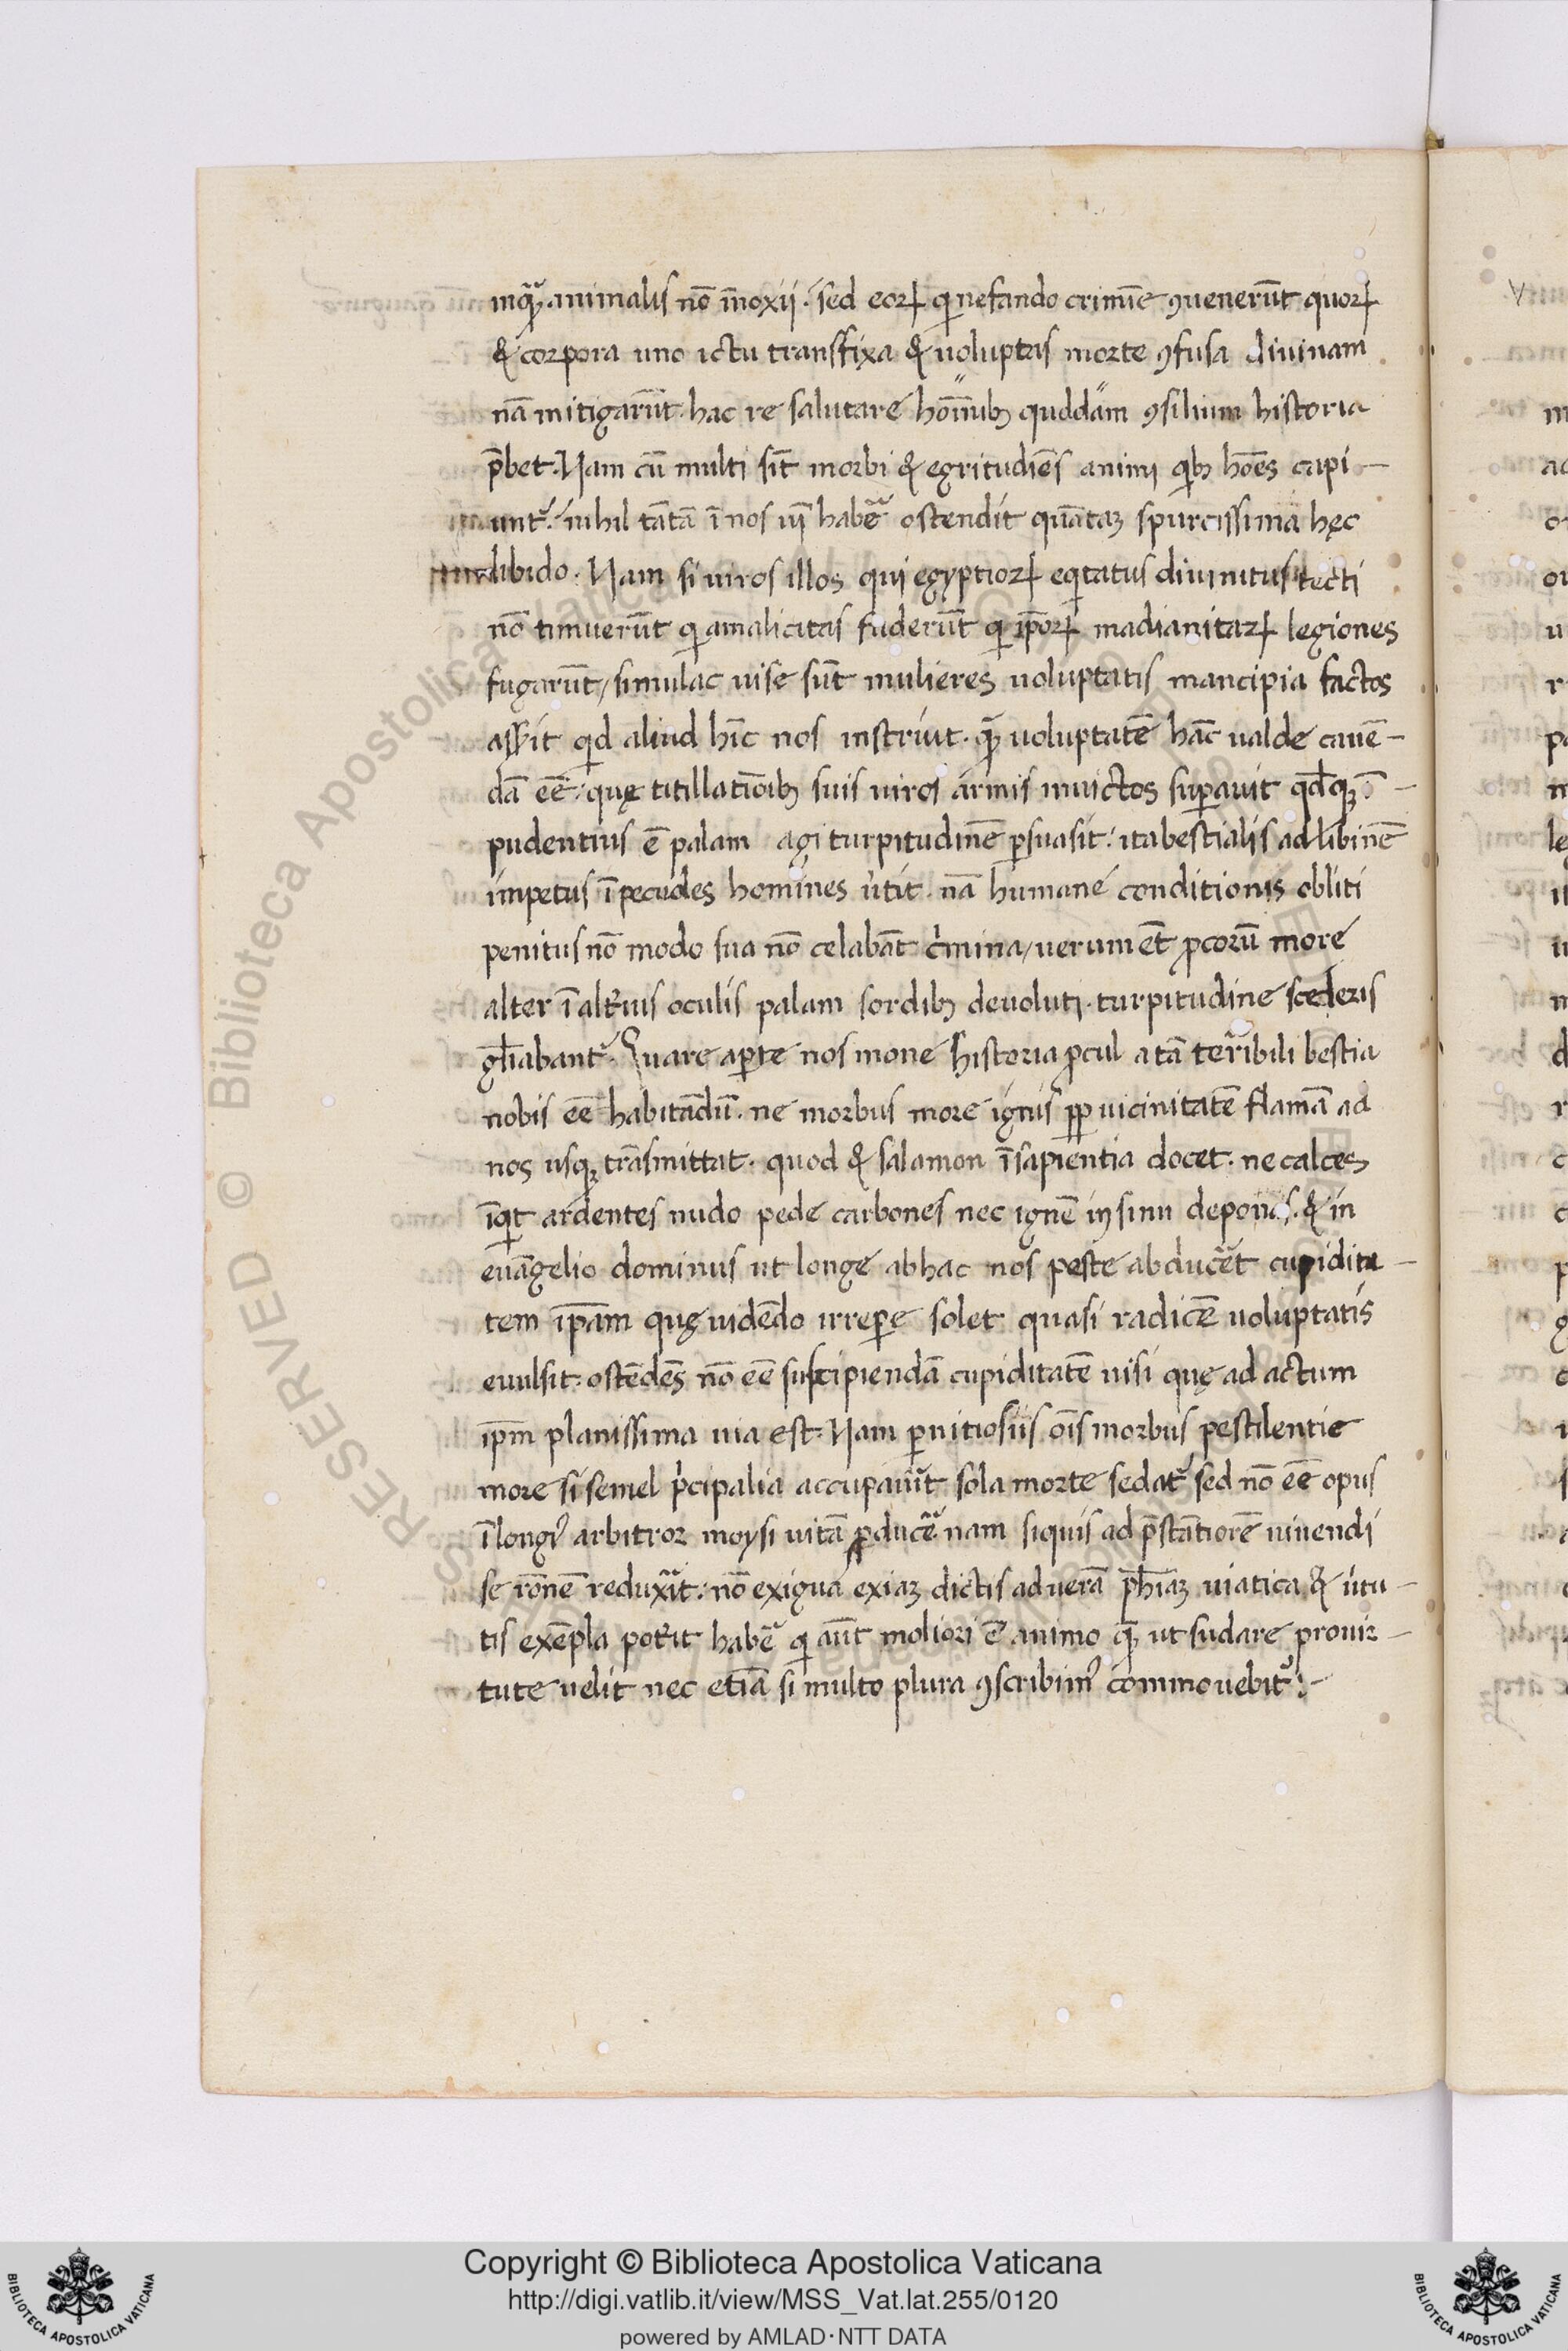 inqua᷑ animalis nō īnoxii. sed eoꝝ qui nefando crimīe ꝯuenerūt quoꝝ
& corpora uno ictu transfixa & uoluptas morte ꝯfusa diuinam
nā mitigarūt. hac re salutare hoīnibꝫ quddam ꝯsilium historia
p̄bet. Nam cū multi sīt morbi & egritudiēs animi qibꝫ hoēs capi-
unt᷑. nihil tātā ī nos uī habē ostendit quātaꝫ spurcissima hęc
libido. Nam si uiros illos qui egyptioꝝ eqitatus diuinitus tecti
nō timuerūt qi amalicitas fuderūt qi ip̄oꝝ madianitaꝝ legiones
fugarūt/ simulac uise sūt mulieres uoluptatis mancipia factos
qid aliud hīc nos instruit. quā uoluptatē hāc ualde cauē-
dā eē. quę titillatiōibꝫ suis uiros armis inuictos suꝑauit qdqꝫ ī-
pudentius ē palam agi turpitudinē ꝑsuasit. ita bestialis ad libinē
impetus ī pecudes homines ūtit. nā humane conditionis obliti
penitus nō modo sua nō celabāt cͥmina/ uerum ēt ꝓcorū more
alter ī altīus oculis palam sordibꝫ deuoluti. turpitudine sceleris
gl̄iabant᷑. Quare aꝑte nos mone historia ꝓcul a tā terribili bestia
nobis eē habitādū. ne morbus more ignis ꝓp uicinitatē flamā ad
nos usqꝫ trāsmittat. quod & salamon ī sapientia docet. ne calces
īqit ardentes nudo pede carbones nec ignē in sinu deponas. & in
euāgelio dominus ut longe ab hac nos peste abducēt cupidita-
tem ip̄am quę uidēdo irreꝑe solet quasi radicē uoluptatis
euulsit. ostēdēs nō eē suscipiendā cupiditatē nisi quę ad actum
ip̄m planissima uia est. Nam ꝑnitiosiis oīs morbus pestilentie
more si semel pͥcipalia accupauīt sola morte sedat᷑ sed nō eē opus
ī longꝰ arbitror moysi uitā ꝓducē nam siquis ad p̄stātiorē uiuendi
se rōnē reduxīt. nō exigua exiaꝫ dictis ad uerā ph̄iaꝫ uiatica & uirtu-
tis exēpla poťit habē qi aūt moliori ē animo quā ut sudare pro uir-
tute uelit nec etiā si multo plura ꝯscribimꝰ commouebit᷑.
Copyright © Biblioteca Apostolica Vaticana
http://digi.vatlib.it/view/MSS_Vat.lat.255/0120
powered by AMLAD·NTT DATA